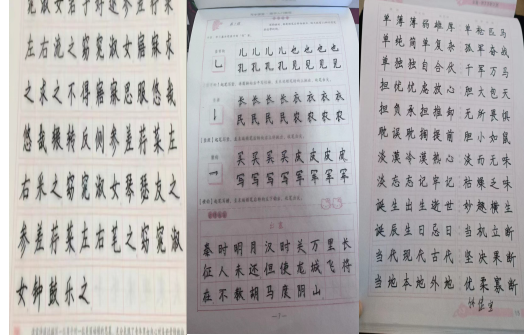 左右流之窈窕淑女寤寐求
之求之不得寤寐思服悠哉
悠哉辗转反侧参差荇菜左
右采之窈窕淑女琴瑟友之
参差荇菜左右芼之窈窕淑
女钟鼓乐之
儿儿儿儿也也也
孔孔孔孔见见见
长长长长衣衣衣
民民民民农农农
买买买买皮皮皮
写写写写军军军
秦时明月汉时关万里长
征人未还但使龙城飞将
在不教胡马度阴山
单薄薄弱雄厚 单枪匹马
单纯简单复杂 孤军奋战
单独独自合伙 千军万马
担忧忧虑放心 胆大包天
担负承担推卸 无所畏惧
耽误耽搁提前 胆小如鼠
淡漠冷漠热心 淡而无味
淡忘忘记牢记 枯燥乏味
诞生出生逝世 妙趣横生
诞辰生日忌日 当机立断
当代现代古代 坚决果断
当地本地外地 优柔寡断